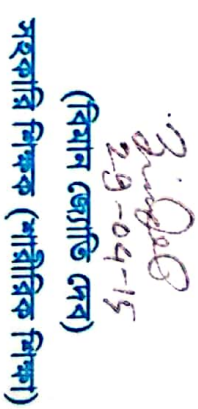 29-04-15
(বিমান জ্যোতি দেব)
সহকারি শিক্ষক (শারীরিক শিক্ষা)